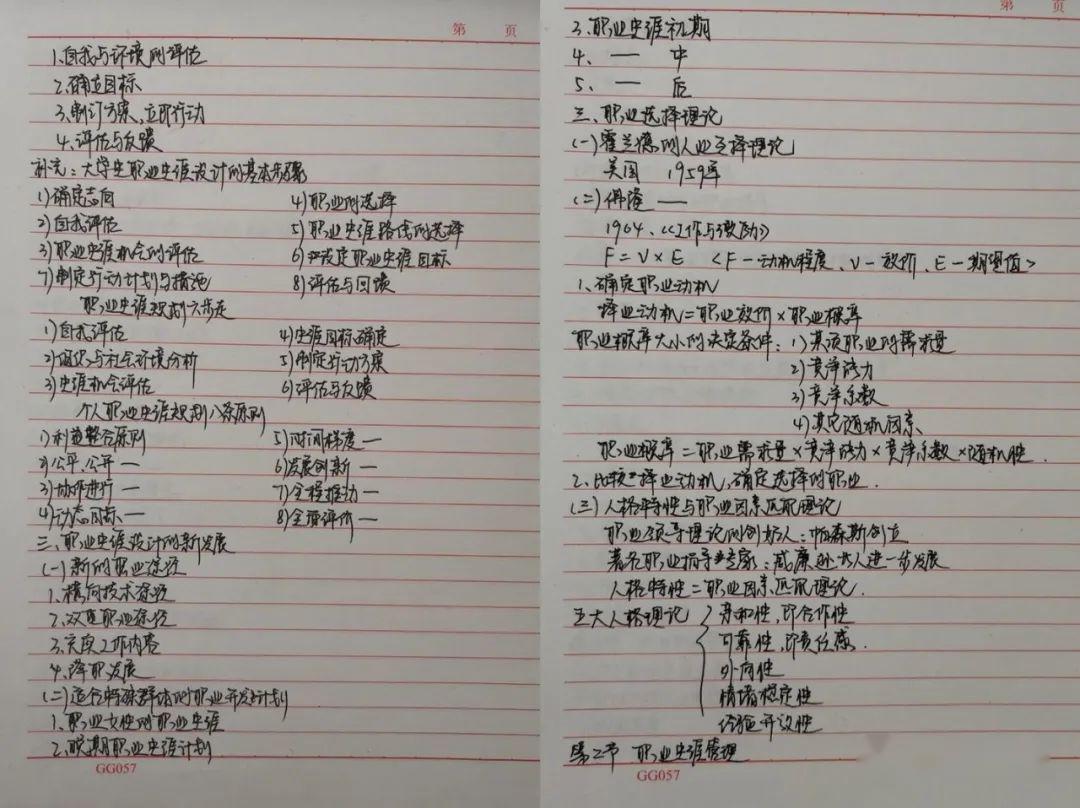 第 页
1、自我与环境的评估
2、确立目标
3、制订方案,立即行动
4、评估与反馈
补充:大学生职业生涯设计的基本步骤
1)确定志向 4)职业的选择
2)自我评估 5)职业生涯路线的选择
3)职业生涯机会的评估 6)设定职业生涯目标
7)制定行动计划与措施 8)评估与回馈
职业生涯规划六步走
1)自我评估 4)生涯目标确定
2)组织与社会环境分析 5)制定行动方案
3)生涯机会评估 6)评估与反馈
个人职业生涯规划八条原则
1)利益整合原则 5)时间梯度一
2)公平,公开一 6)发展创新一
3)协作进行一 7)全程推动一
4)动态目标一 8)全面评价一
三、职业生涯设计的新发展
(一)新的职业途径
1、横向技术途径
2、双重职业途径
3、充实工作内容
4、降职发展
(二)适合特殊群体的职业开发计划
1、职业女性的职业生涯
2、晚期职业生涯计划
GG057
第 页
3、职业生涯初期
4、 一 中
5、 一 后
三、职业选择理论
(一)霍兰德的人业互择理论
美国 1959年
(二)佛隆一
1964、《工作与激励》
F=V×E <F一动机程度、V一效价、E一期望值>
1、确定职业动机
择业动机=职业效价×职业概率
职业概率大小的决定条件:1)某项职业的需求量
2)竞争能力
3)竞争系数
4)其它随机因素
职业概率=职业需求量×竞争能力×竞争系数×随机性.
2、比较择业动机,确定选择的职业.
(三)人格特性与职业因素匹配理论
职业领导理论的创始人:帕森斯创立
著名职业指导专家:威廉逊 人进一步发展
人格特性=职业因素匹配理论.
五大人格理论 亲和性,即合作性
可靠性,即责任感.
外向性
情绪稳定性
经验开放性
第二节 职业生涯管理
GG057